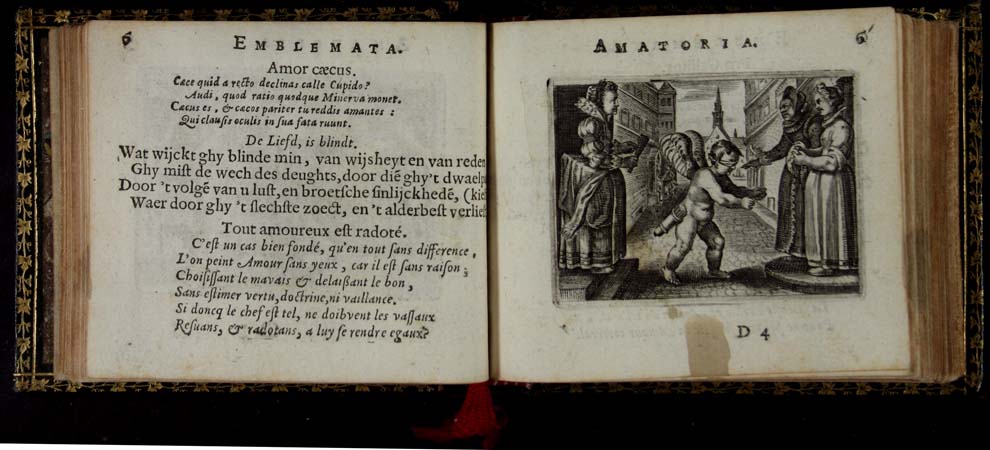 6
EMBLEMATA.
Amor cæcus.
Cæce quid a recto declinas calle Cupido?
Audi, quod ratio quodque Minerva monet.
Cæcus es, & cæcos pariter tu reddis amantes:
Qui clausis oculis in sua fata ruunt.
De Liefd, is blindt.
Wat wijckt ghy blinde min, van wijsheyt en van reden
Ghy mist de wech des deughts, door diē ghy't dwaelpa
Door 't volgē van u lust, en broetsche sinlijckhedē, (kies
Waer door ghy 't slechste zoect, en 't alderbest verliest
Tout amoureux est radoté.
C'est un cas bien fondé, qu'en tout sans difference,
L'on peint Amour sans yeux, car il est sans raison;
Choisissant le mavais & delaissant le bon,
Sans estimer vertu, doctrine, ni vaillance.
Si doncq le chef est tel, ne doibvent les vassaux
Resuans, & radotans, a luy se rendre egaux?
AMATORIA.
6
D 4